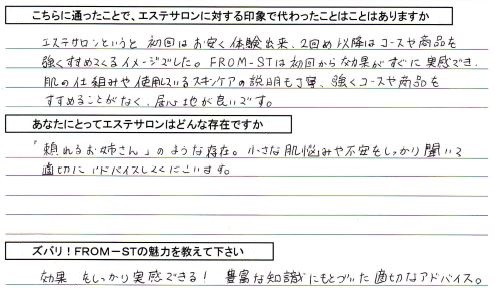 こちらに通ったことで、エステサロンに対する印象で代わったことはことはありますか
エステサロンというと 初回はお安く体験出来、2回め以降はコースや商品を
強くすすめてくるイメージでした。FROM-STは初回から効果がすぐに実感でき、
肌の仕組みや使用しているスキンケアの説明も丁寧、強くコースや商品を
すすめることがなく、居心地が良いです。
あなたにとってエステサロンはどんな存在ですか
「頼れるお姉さん」のような存在。小さな肌悩みや不安をしっかり聞いて
適切にアドバイスしてくださいます。
ズバリ！FROM－STの魅力を教えて下さい
効果 をしっかり実感できる！ 豊富な知識にもとづいた適切なアドバイス。